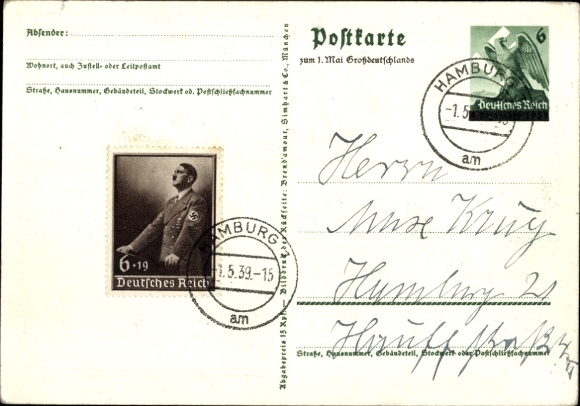 Absender:
Wohnort, auch Zustell- oder Leitpostamt
Straße, Hausnummer, Gebäudeteil, Stockwerk od. Postschließfachnummer
6+19
Deutsches Reich
HAMBURG
-1.5.39.-15
am
Abgabepreis 15 Rpf. Bilddruck der Rückseite: Brend'amour, Simhart & Co., München
Postkarte
zum 1. Mai Großdeutschlands
6
Deutsches Reich
HAMBURG
-1.5
am
Herrn
Max Krug
Hamburg 21
Straße, Hausnummer, Gebäudeteil, Stockwerk oder Postschließfachnummer